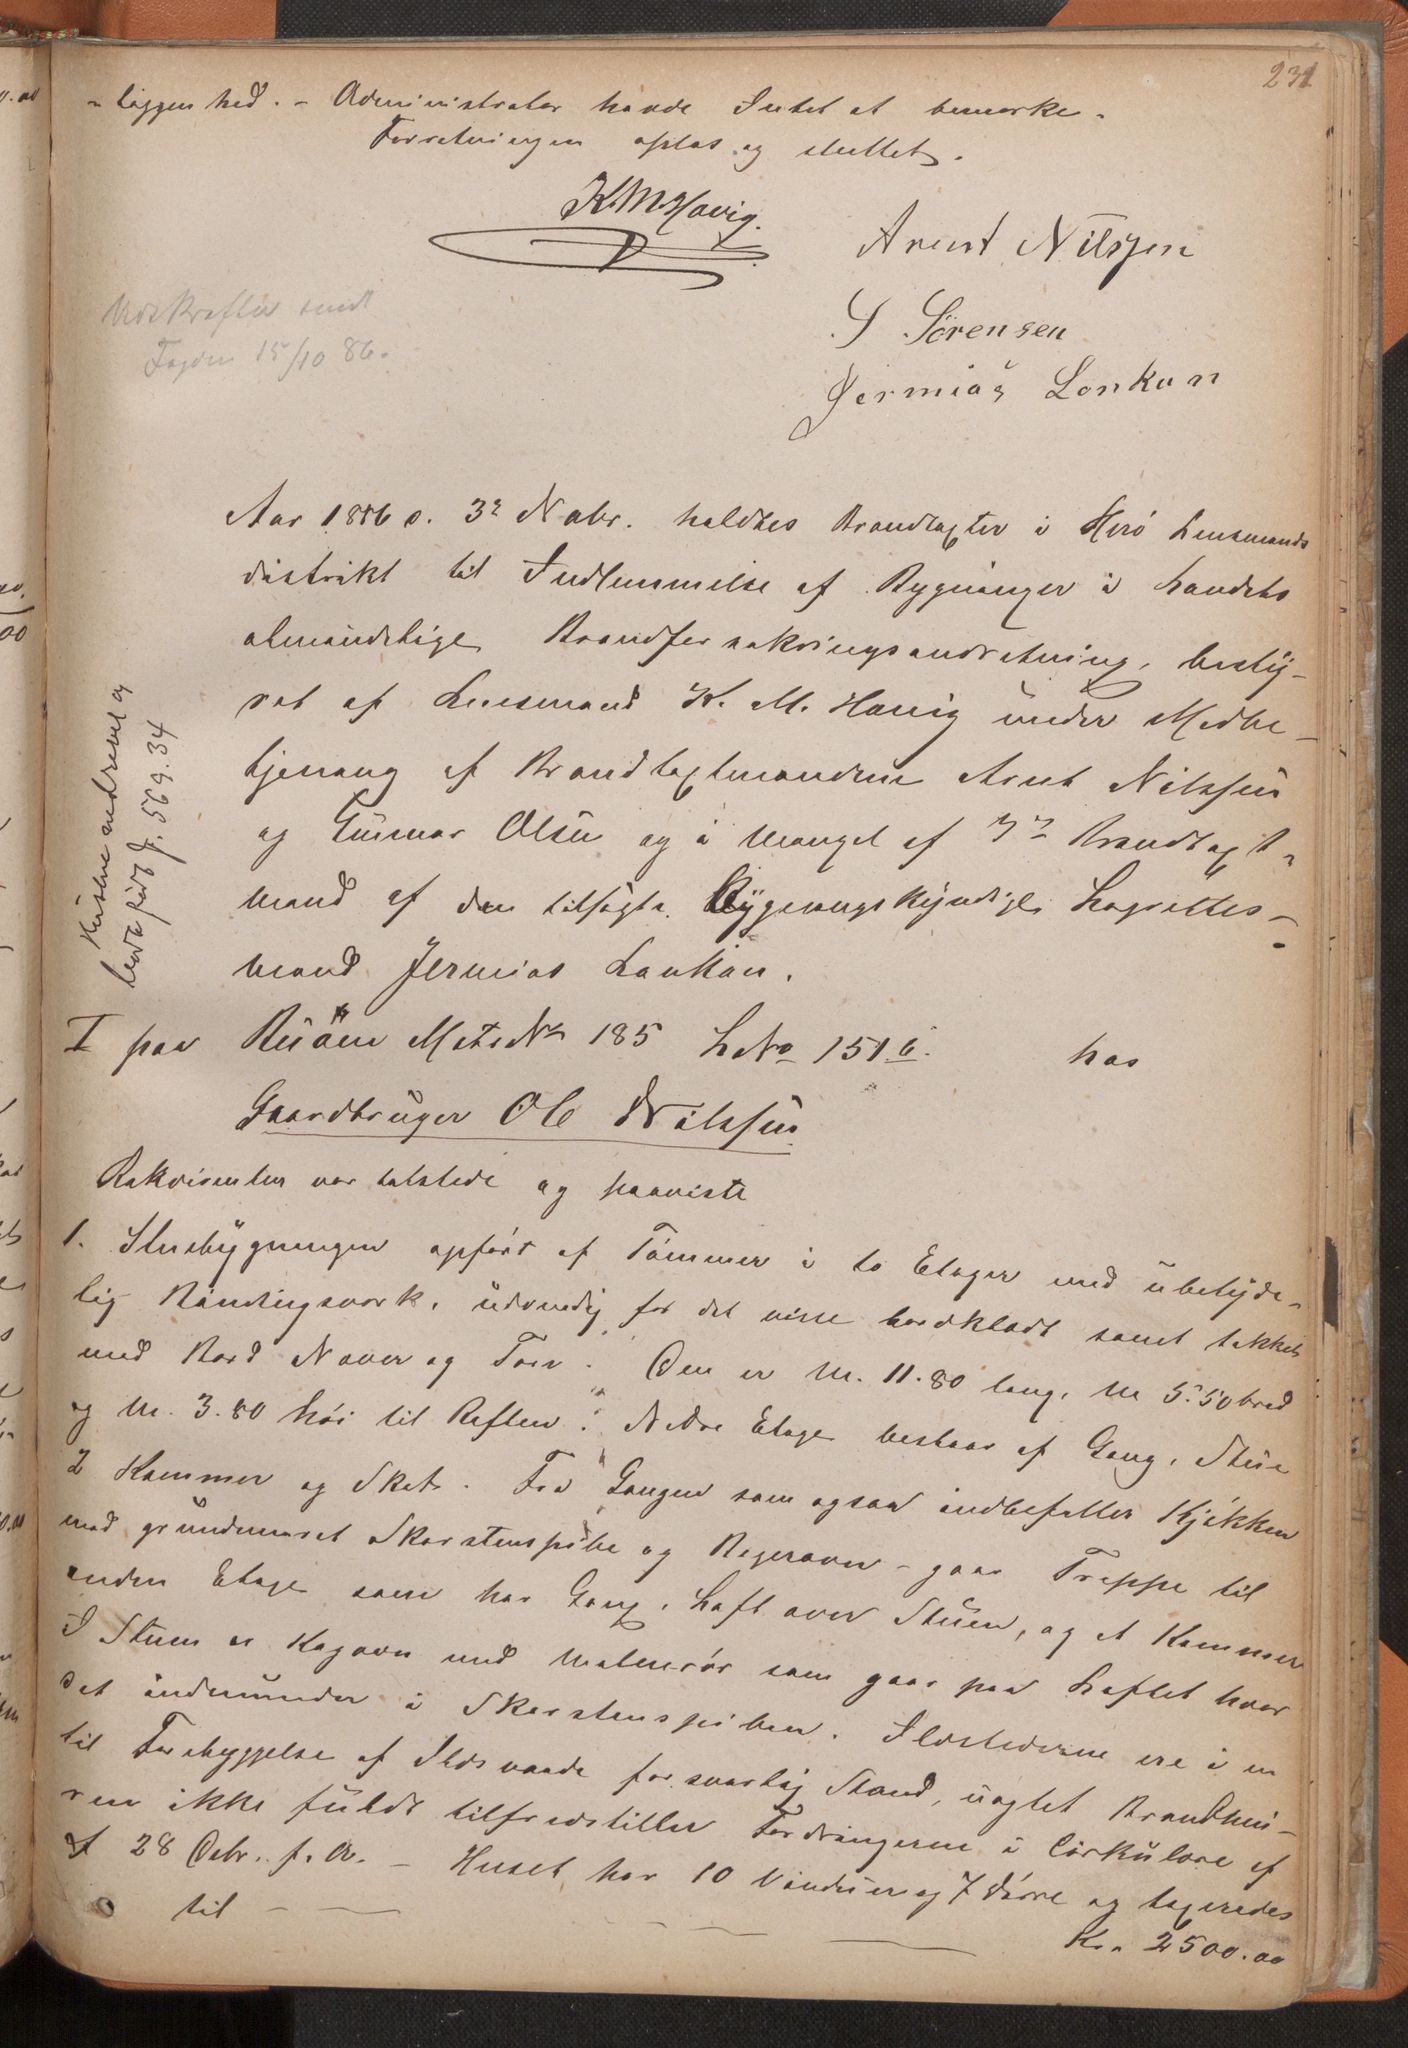 231
- liggenhed. - Administrator havde Intet at bemærke.
Forretningen oplæst og sluttet.
K. M. Havig.
Arent Nilsen
S Sörensen
Jermias Lonkan
Udskrifter sendt
Fogden 15/10 86.
Aar 1886 d. 3die Nobr. holdtes Brandtaxter i Herö Lensmands
distrikt til Indlemmelse af Bygninger i Landets
almindelige Brandforsikringsindretning, besty-
ret af Lensmand K. M. Havig under Medbe-
tjening af Brandtaxtmændene Arnt Nilssen
og Gunnar Olsen og i Mangel af 3die Brandtaxt-
mand af den tilsagte Bygningskyndige Lagrettes-
mand Jermias Lankan.
Husene nedrevet og
bortført J. 569.34
I paa Risöen Mats No 185 LNo 151 b. hos
Gaardbruger Ole Nilssen
Rekvirenten var tilstede og paaviste
1. Stuebygningen opført af Tømmer i to Etager med ubetyde-
lig Bindingsværk, udvendig for det meste bordklædt samt tækket
med Bord Næver og Torv. Den er M. 11.80 lang, M 5.50 bred
og M. 3.80 höi til Raften. Nedre Etage bestaar af Gang, Stue
2 Kammer og Skot. Fra Gangen som ogsaa indbefatter Kjökken
med grundmuret Skorstenspibe og Bagerovn - gaar Trappe til
anden Etage som har Gang, Loft over Stuen, og et Kammer
I Stuen er Kogovn med Malmrör som gaar paa Loftet hvor
det indmunder i Skorstenspiben. Ildstederne ere i en
til Forebyggelse af Ildsvaade forsvarlig Stand, uagtet Brandmu-
ren ikke fuldt tilfredstiller Fordringerne i Cirkulære af
28 Debr. f. A. - Huset har 10 Vinduer og 7 Dörre og taxeredes
til - - - - - Kr. 2500.00